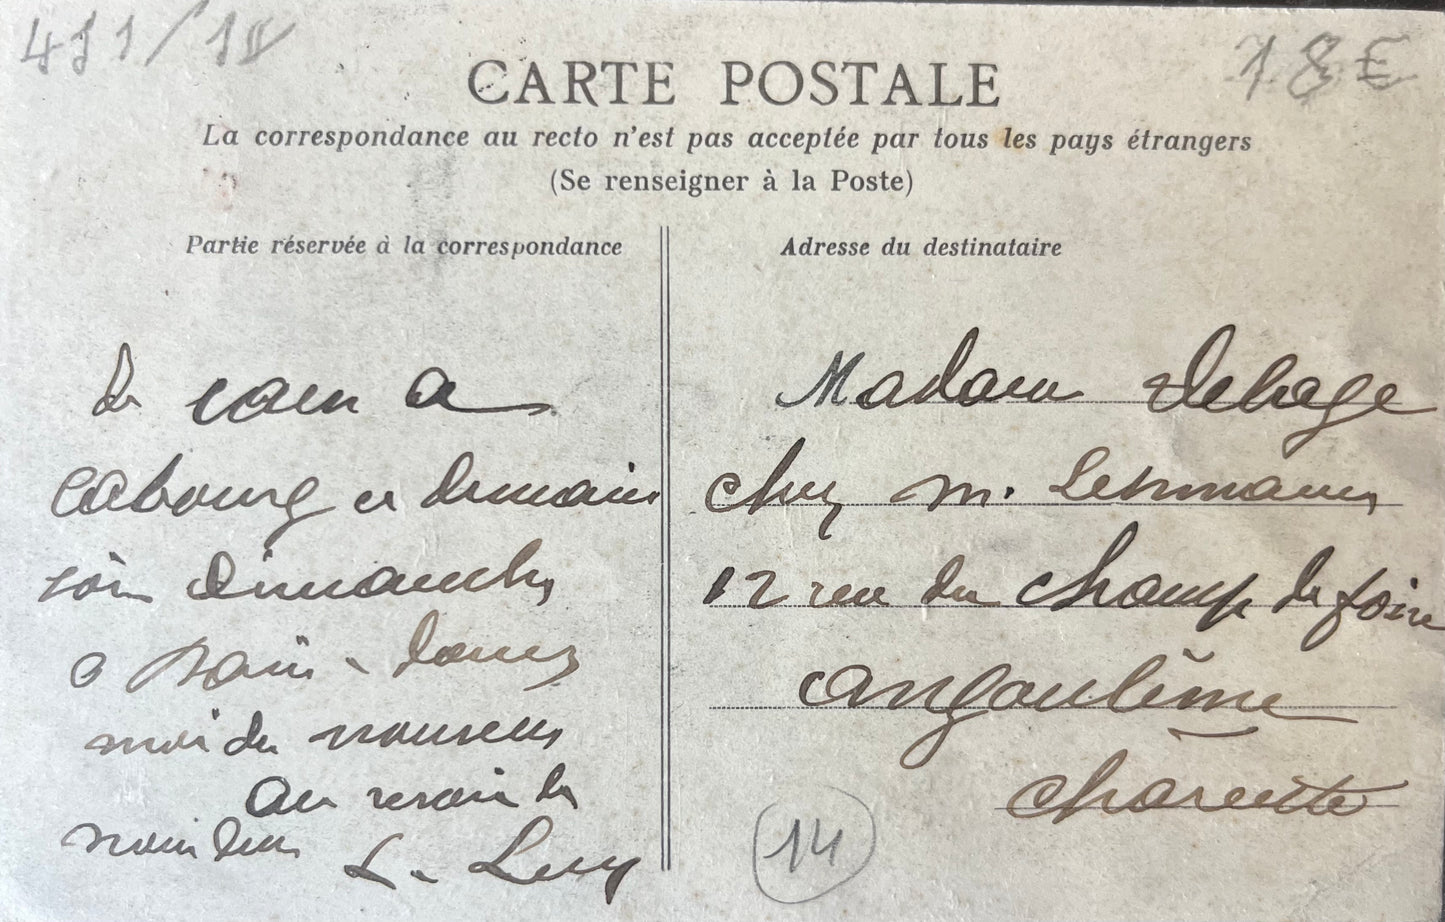 18€
CARTE POSTALE
La correspondance au recto n'est pas acceptée par tous les pays étrangers
(Se renseigner à la Poste)
Partie réservée à la correspondance
de caen a
Cabourg et demain
soir dimanche
a Paris - donnez
moi de nouvelles
au revoir la
L. Levy
Adresse du destinataire
Madame Delage
chez M. Lehmann
12 rue du champ de foire
angoulême
charente
14